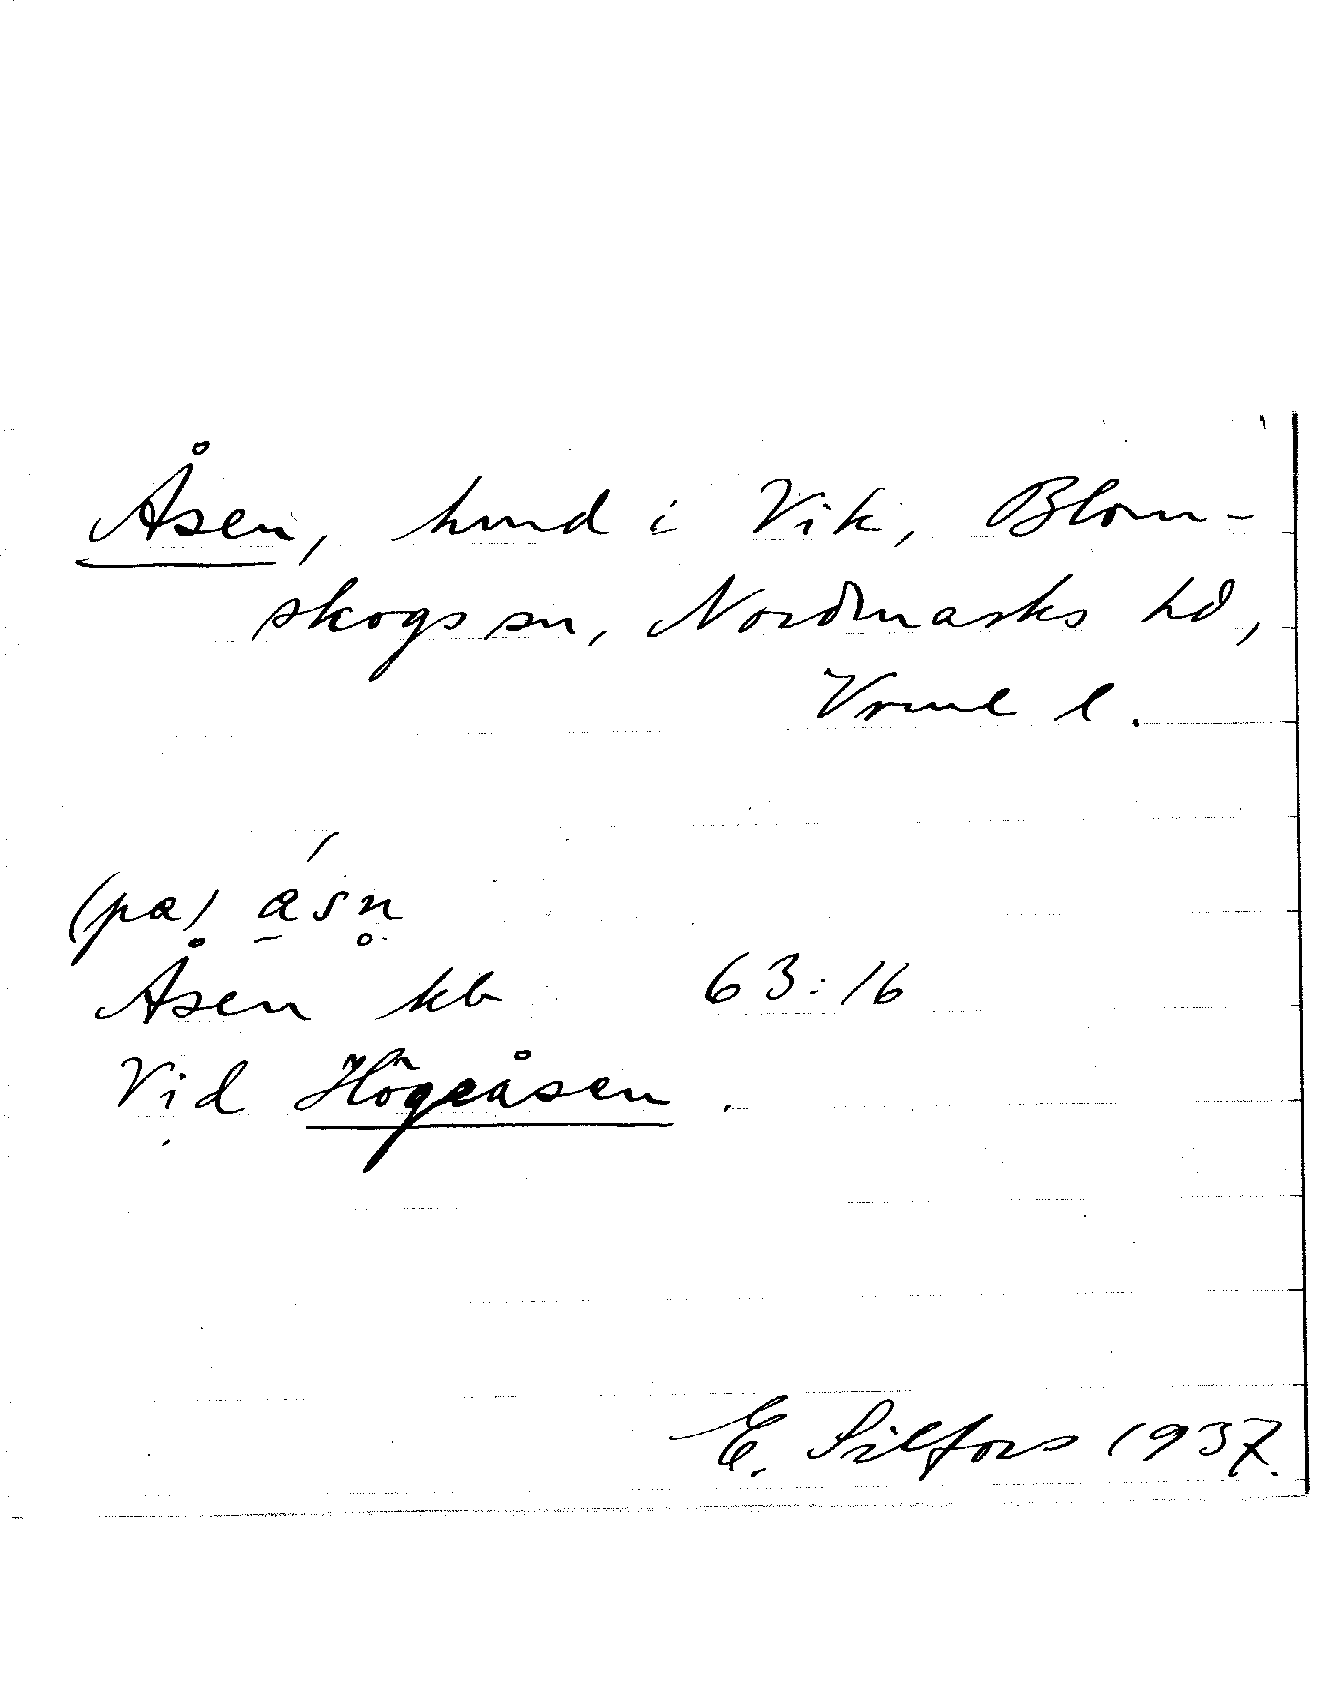 Åsen, hmd i Vik, Blom-
skogs sn, Nordmarks hd,
Vrml l.
(pa) a̠´sn̥
Åsen kb 63:16
Vid Högeåsen.
E. Silfors 1937.